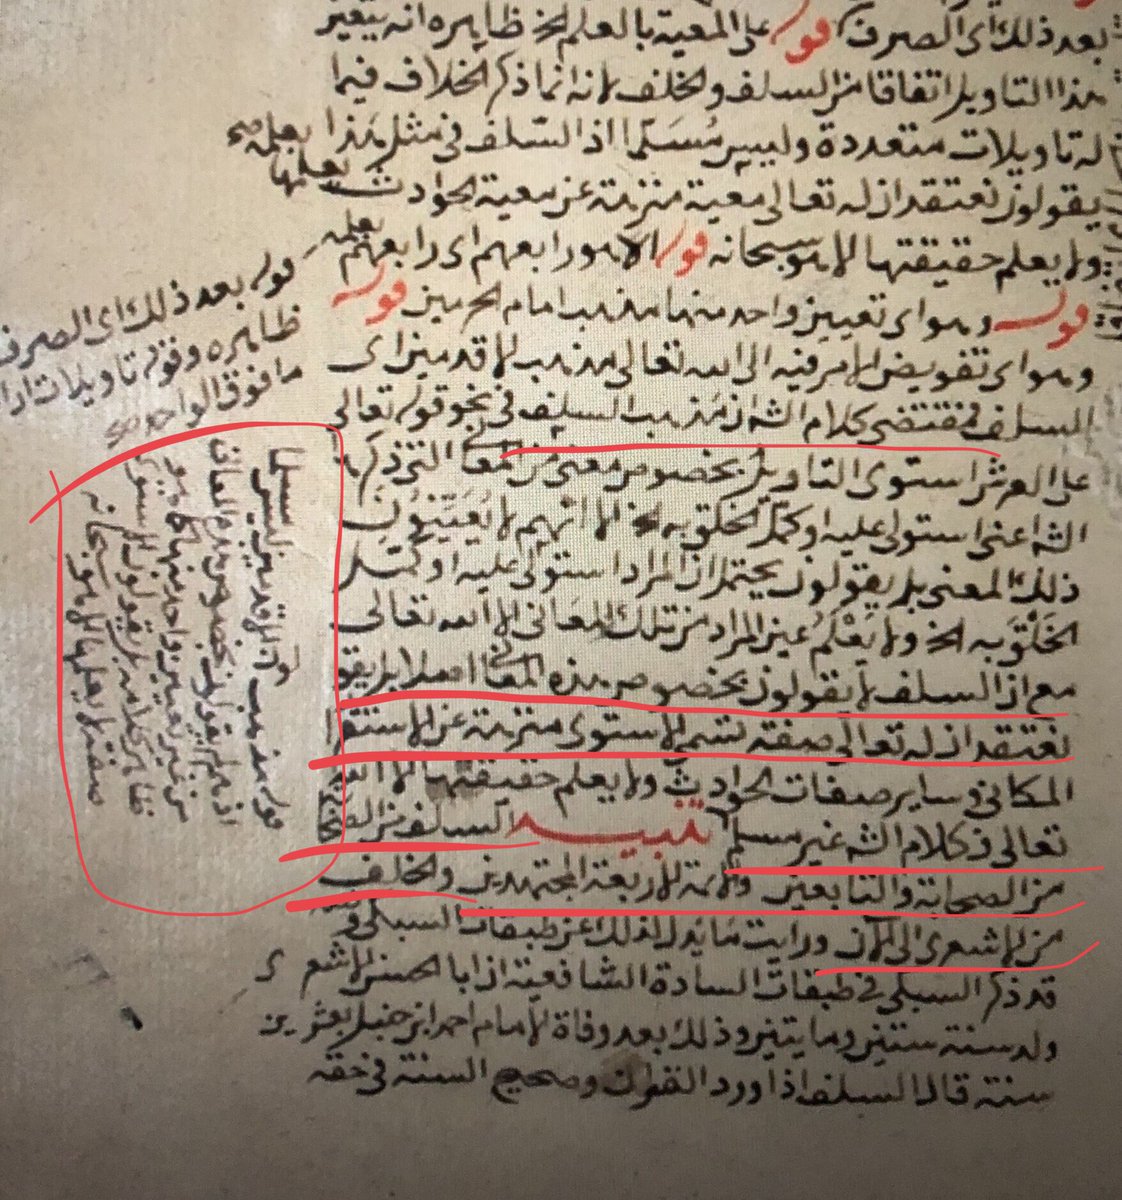 بعد ذلك اى الصرف قوله على المعية بالعلم الخ ظاهره انه يتعين
هذا التاويل اتفاقا من السلف والخلف لانه انما ذكر الخلاف فيما
له تاويلات متعددة وليس مُسَلَّما اذ السلف فى مثل هذا
يقولون نعتقد ان له تعالى معية منزهة عن معية الحوادث
ولا يعلم حقيقتها الا هو سبحانه قوله الا هو رابعهم اى رابعهم
قوله وهو اى تعيين واحد منها مذهب امام الحرمين قوله
وهو اى تفويض الامر فيه الى الله تعالى مذهب الاقدمين اى
السلف فمقتضى كلام الشه ان مذهب السلف فى نحو قوله تعالى
على العرش استوى التاويل بخصوص معنى من المعا التى ذكرها
الشه اعنى استولى عليه او كمّل الخلق به الخ الا انهم لا يُعَيّنُونَ
ذلك المعنى بل يقولون يحتمل ان المراد استولى عليه او كمّل
الخَلْقَ به الخ ولا يَعْلَمُ عين المراد من تلك المعانى الا الله تعالى
مع ان السلف لا يقولون بخصوص هذه المعا اصلا بل يقو
نعتقد ان له تعالى صفة تسمى الاستوى منزهة عن الاستقرا
المكانى وساير صفات الحوادث ولا يعلم حقيقتها الا الله
تعالى فكلام الشه غير مسلم تنبيه السلف من
من الصحابة والتابعين والائمة الاربعة المجتهدين والخلف
من الاشعرى الى الان ورايت ما يدل لذلك عن طبقات السبكى و
قد ذكر السبكى فى طبقات السادة الشافعية ان ابا الحسن الاشعرى
ولد سنة ستين ومايتين وذلك بعد وفاة الامام احمد ابن حنبل بعشرين
سنة قال السلف اذا ورد القران وصحيح السنة فى حقه
يعلمه
قوله بعد ذلك اى الصرف
ظاهره وقوله تاويلات اراد
ما فوق الواحد
قوله مذهب الاقدمين ليس مسلما
اذ هم لم يقولوا بخصوص هذه المعانى
من غير تعيين واحد منها كما هو
ظاهر كلامه بل يقولون الاستوى
صفة لا يعلمها الا هو سبحانه